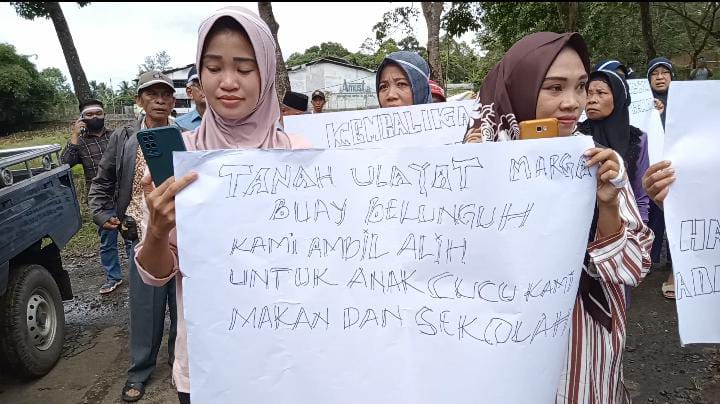 KEMBALIKA
TANAH ULAYAT MARGA
BUAY BELUNGUH
KAMI AMBIL ALIH
UNTUK ANAK CUCU KAMI
MAKAN DAN SEKOLAH